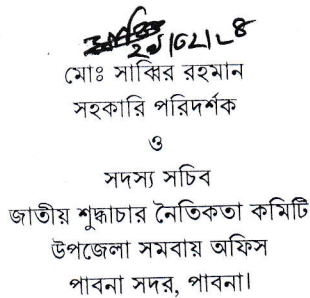 মোঃ সাব্বির রহমান
সহকারি পরিদর্শক
ও
সদস্য সচিব
জাতীয় শুদ্ধাচার নৈতিকতা কমিটি
উপজেলা সমবায় অফিস
পাবনা সদর, পাবনা।